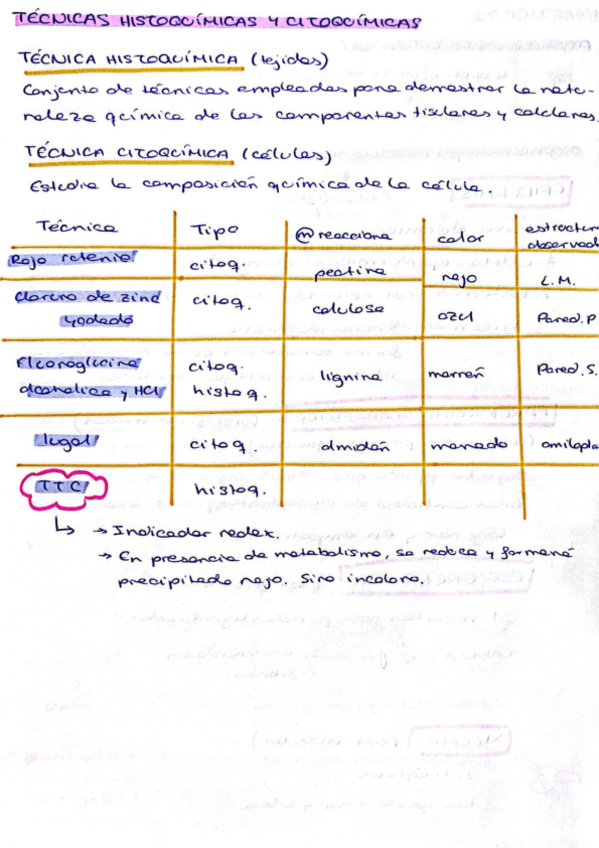 TÉCNICAS HISTOQUÍMICAS Y CITOQUÍMICAS
TÉCNICA HISTOQUÍMICA (tejidos)
Conjunto de técnicas empleadas para demostrar la natu-
raleza química de los componentes tisulares y celulares.
TÉCNICA CITOQUÍMICA (células)
Estudia la composición química de la célula.
Técnica Tipo @ reacciona color estructur observad
Rojo rutenio citoq. pectina rojo L.M.
Cloruro de zinc yodado citoq. celulosa azul Pared. P
Floroglucina alcoholica y HCl citoq. histoq. lignina marrón Pared. S.
lugol citoq. almidón morado amilopla
TTC histoq.
↳ → Indicador redox.
→ En presencia de metabolismo, se reduce y formará
precipitado rojo. Sino incoloro.